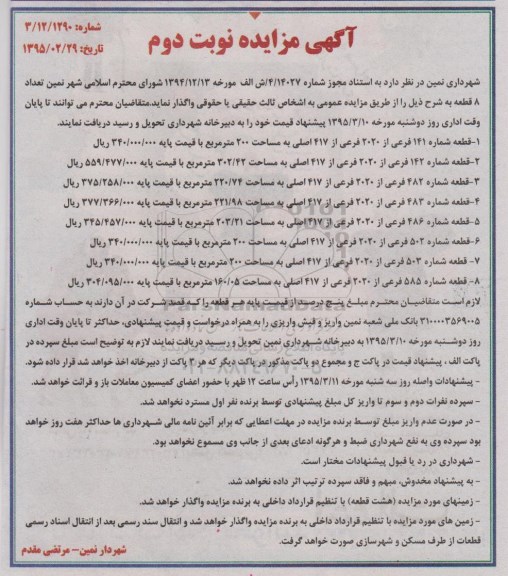 شماره: ۳/۱۲/۱۲۹۰
تاریخ: ۱۳۹۵/۰۲/۲۹
آگهی مزایده نوبت دوم
شهرداری نمین در نظر دارد به استناد مجوز شماره ۴/۱۴۰۲۷/ش الف مورخه ۱۳۹۴/۱۲/۱۳ شورای محترم اسلامی شهر نمین تعداد
۸ قطعه به شرح ذیل را از طریق مزایده عمومی به اشخاص ثالث حقیقی یا حقوقی واگذار نماید.متقاضیان محترم می توانند تا پایان
وقت اداری روز دوشنبه مورخه ۱۳۹۵/۳/۱۰ پیشنهاد قیمت خود را به دبیرخانه شهرداری تحویل و رسید دریافت نمایند.
۱-قطعه شماره ۱۴۱ فرعی از ۲۰۲۰ فرعی از ۴۱۷ اصلی به مساحت ۲۰۰ مترمربع با قیمت پایه ۳۴۰/۰۰۰/۰۰۰ ریال
۲-قطعه شماره ۱۴۲ فرعی از ۲۰۲۰ فرعی از ۴۱۷ اصلی به مساحت ۳۰۲/۴۲ مترمربع با قیمت پایه ۵۵۹/۴۷۷/۰۰۰ ریال
۳-قطعه شماره ۴۸۲ فرعی از ۲۰۲۰ فرعی از ۴۱۷ اصلی به مساحت ۲۲۰/۷۴ مترمربع با قیمت پایه ۳۷۵/۲۵۸/۰۰۰ ریال
۴-قطعه شماره ۴۸۳ فرعی از ۲۰۲۰ فرعی از ۴۱۷ اصلی به مساحت ۲۲۱/۹۸ مترمربع با قیمت پایه ۳۷۷/۳۶۶/۰۰۰ ریال
۵-قطعه شماره ۴۸۶ فرعی از ۲۰۲۰ فرعی از ۴۱۷ اصلی به مساحت ۲۰۳/۲۱ مترمربع با قیمت پایه ۳۴۵/۴۵۷/۰۰۰ ریال
۶-قطعه شماره ۵۰۲ فرعی از ۲۰۲۰ فرعی از ۴۱۷ اصلی به مساحت ۲۰۰ مترمربع با قیمت پایه ۳۴۰/۰۰۰/۰۰۰ ریال
۷-قطعه شماره ۵۰۳ فرعی از ۲۰۲۰ فرعی از ۴۱۷ اصلی به مساحت ۲۰۰ مترمربع با قیمت پایه ۳۴۰/۰۰۰/۰۰۰ ریال
۸- قطعه شماره ۵۸۵ فرعی از ۲۰۲۰ فرعی از ۴۱۷ اصلی به مساحت ۱۶۰/۰۵ مترمربع با قیمت پایه ۳۰۴/۰۹۵/۰۰۰ ریال
لازم است متقاضیان محترم مبلغ پنج درصد از قیمت پایه هر قطعه را که قصد شرکت در آن دارند به حساب شماره
۳۱۰۰۰۰۳۵۶۹۰۰۵ بانک ملی شعبه نمین واریز و فیش واریزی را به همراه درخواست و قیمت پیشنهادی، حداکثر تا پایان وقت اداری
روز دوشنبه مورخه ۱۳۹۵/۳/۱۰ به دبیرخانه شهرداری نمین تحویل و رسید دریافت نمایند لازم به توضیح است مبلغ سپرده در
پاکت الف ، پیشنهاد قیمت در پاکت ج و مجموع دو پاکت مذکور در پاکت دیگر که هر ۳ پاکت از دبیرخانه اخذ خواهد شد قرار داده شود.
- پیشنهادات واصله روز سه شنبه مورخه ۱۳۹۵/۳/۱۱ رأس ساعت ۱۲ ظهر با حضور اعضای کمیسیون معاملات باز و قرائت خواهد شد.
- سپرده نفرات دوم و سوم تا واریز کل مبلغ پیشنهادی توسط برنده نفر اول مسترد نخواهد شد.
- در صورت عدم واریز مبلغ توسط برنده مزایده در مهلت اعطایی که برابر آئین نامه مالی شهرداری ها حداکثر هفت روز خواهد
بود سپرده وی به نفع شهرداری ضبط و هرگونه ادعای بعدی از جانب وی مسموع نخواهد بود.
- شهرداری در رد یا قبول پیشنهادات مختار است.
- به پیشنهاد مخدوش، مبهم و فاقد سپرده ترتیب اثر داده نخواهد شد.
- زمینهای مورد مزایده (هشت قطعه) با تنظیم قرارداد داخلی به برنده مزایده واگذار خواهد شد.
- زمین های مورد مزایده با تنظیم قرارداد داخلی به برنده مزایده واگذار خواهد شد و انتقال سند رسمی بعد از انتقال اسناد رسمی
قطعات از طرف مسکن و شهرسازی صورت خواهد گرفت.
شهردار نمین- مرتضی مقدم